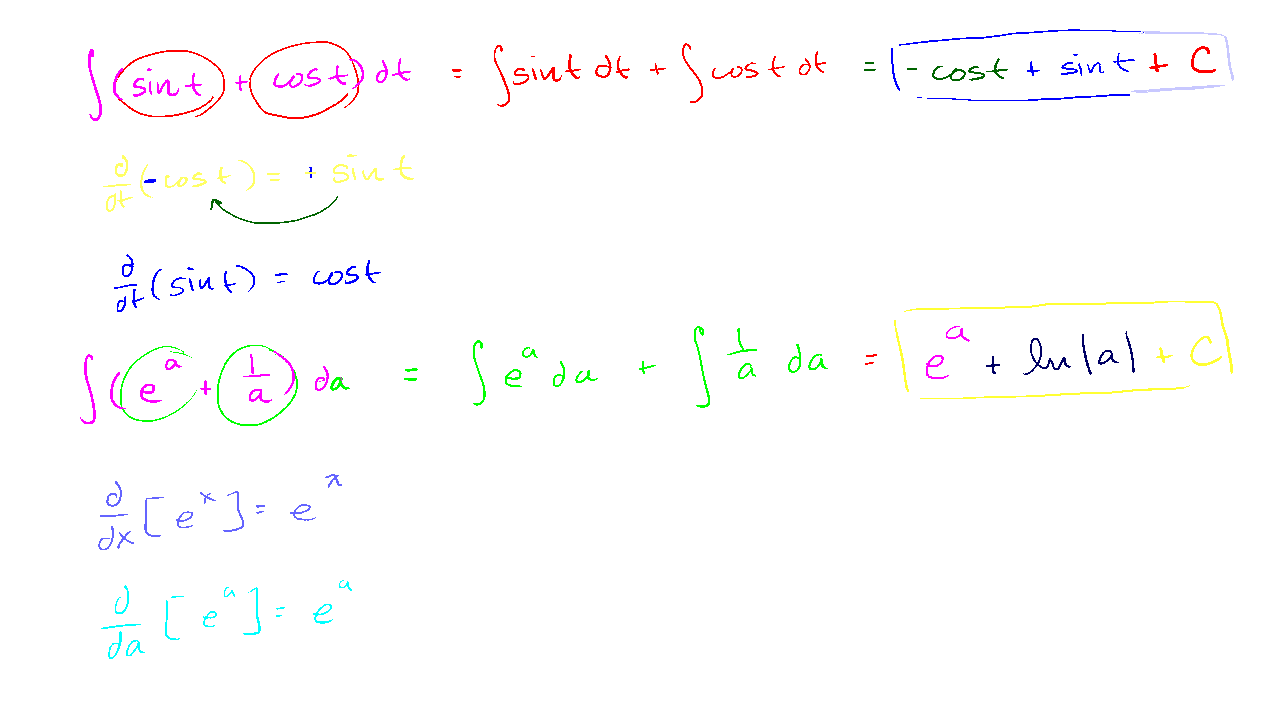 ∫(sin t + cos t) dt = ∫ sin t dt + ∫ cos t dt = - cos t + sin t + C
d/dt (- cos t) = + sin t
d/dt (sin t) = cos t
∫(e^a + 1/a) da = ∫ e^a da + ∫ 1/a da = e^a + ln|a| + C
d/dx [e^x] = e^x
d/da [e^a] = e^a